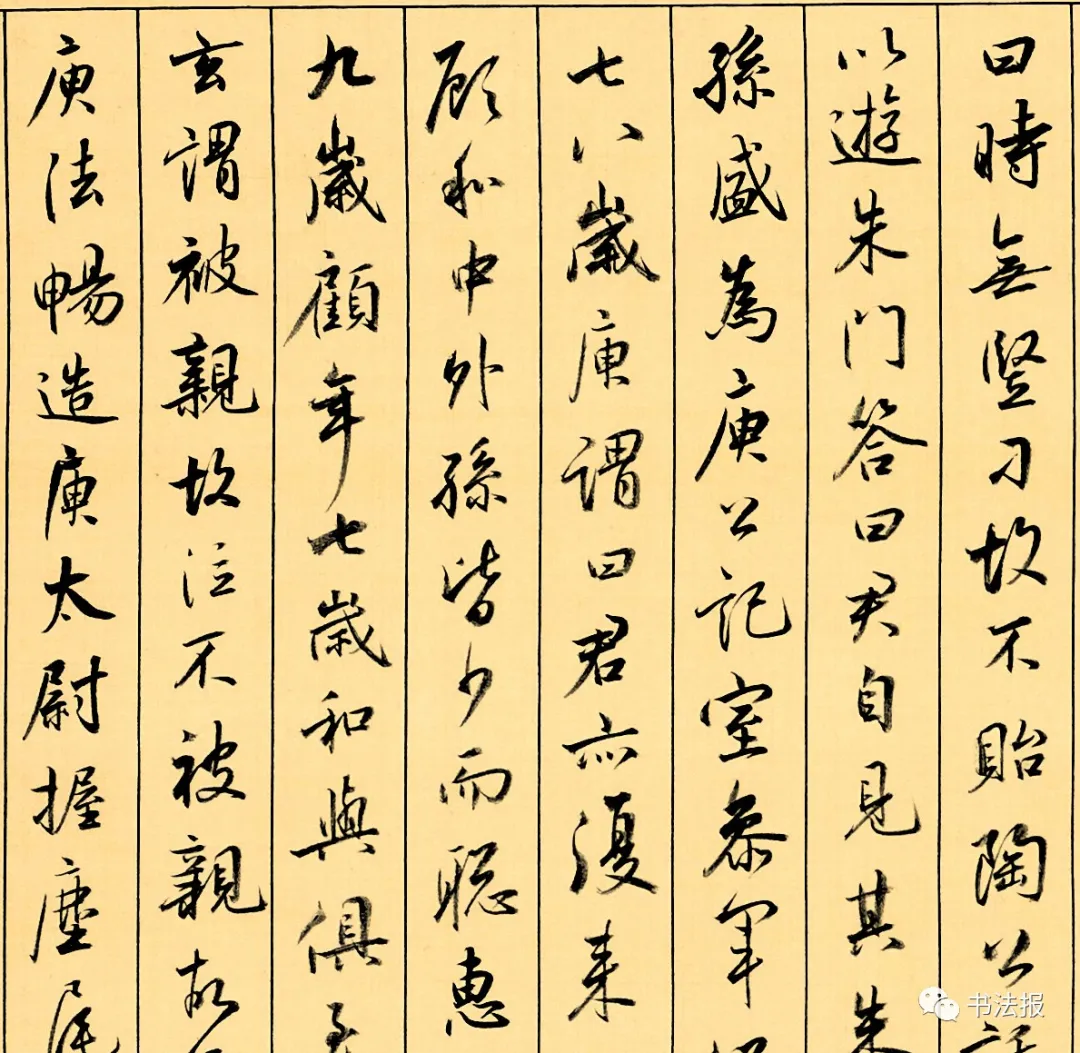 曰時無豎刁故不貽陶公
以遊朱門答曰君自見其朱
孫盛為庾公記室參軍
七八歲庾謂曰君亦復来
顧和中外孫皆少而聰惠
九歲顧年七歲和與俱至
玄謂被親故泣不被親故
庾法暢造庾太尉握麈尾
书法报